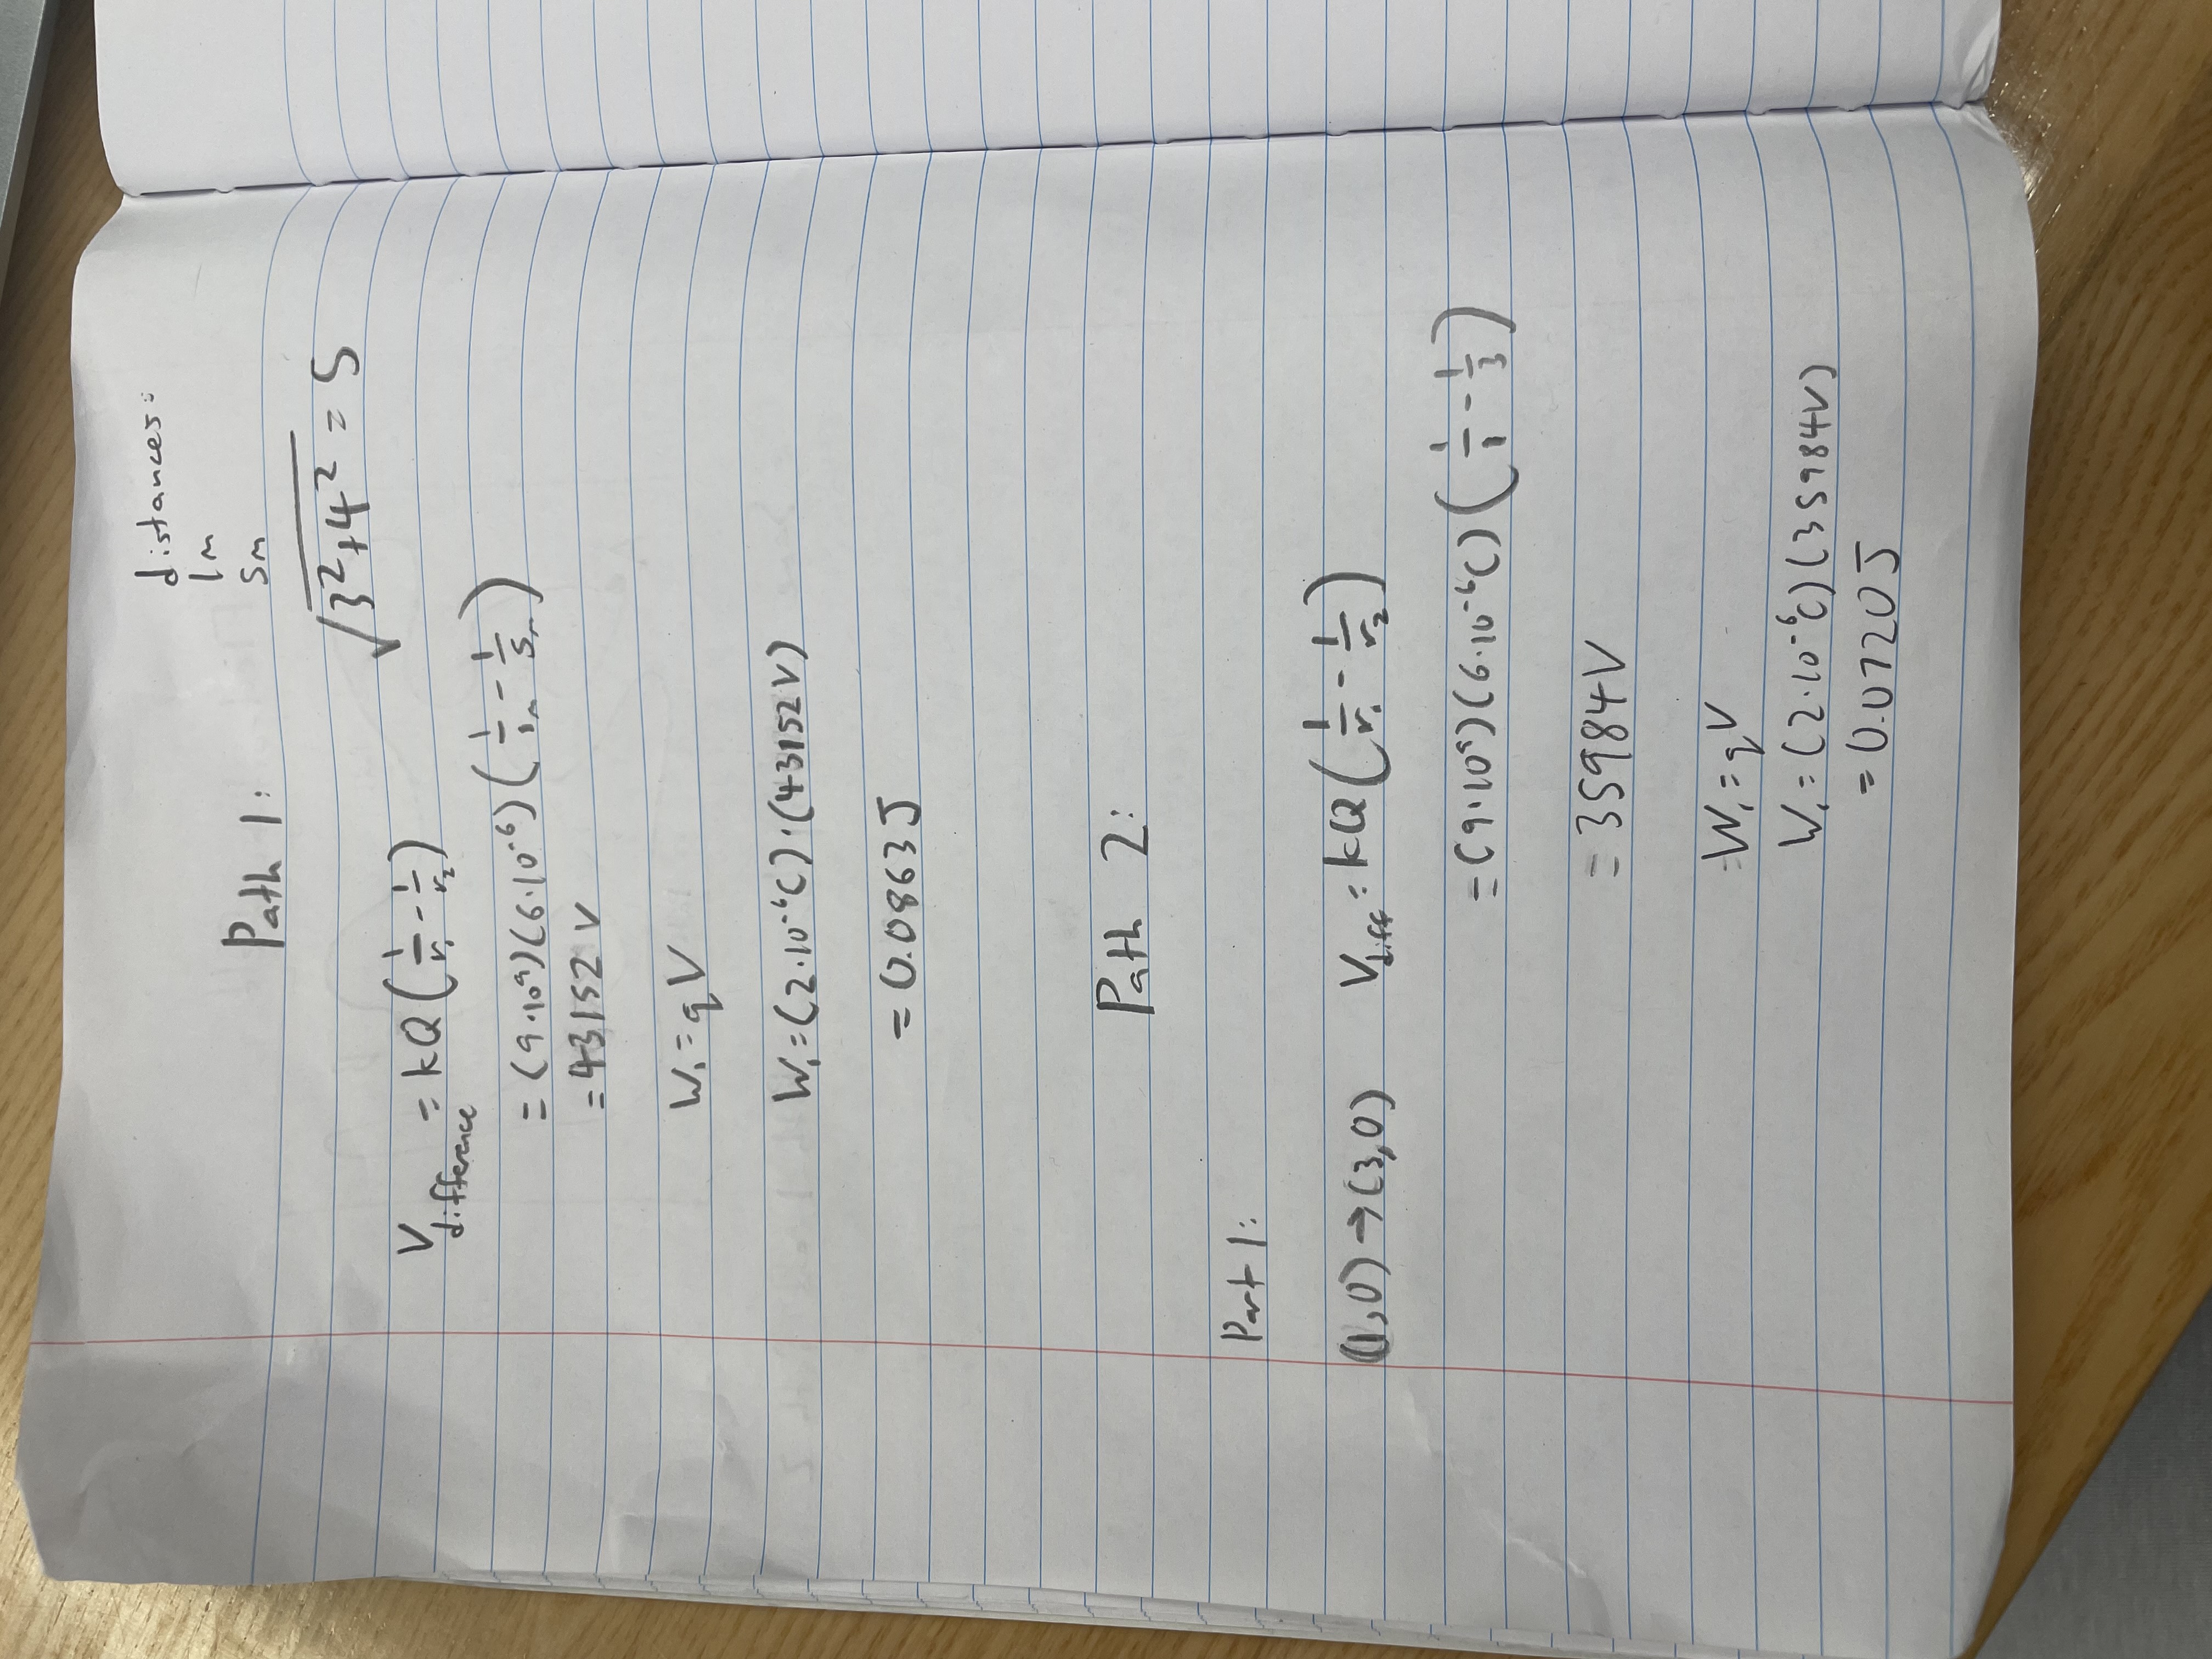 distances:
1m
5m
Path 1:
√3²+4² = 5
V difference = kQ(1/r₁ - 1/r₂)
= (9·10⁹)(6·10⁻⁶)(1/1m - 1/5m)
= 43152 V
W₁ = qV
W₁ = (2·10⁻⁶C)·(43152V)
= 0.0863J
Path 2:
Part 1:
(1,0)→(3,0) V diff = kQ(1/r₁ - 1/r₂)
= (9·10⁹)(6·10⁻⁶C)(1/1 - 1/3)
= 35984V
=W₁ = qV
W₁ = (2·10⁻⁶C)(35984V)
= 0.0720J